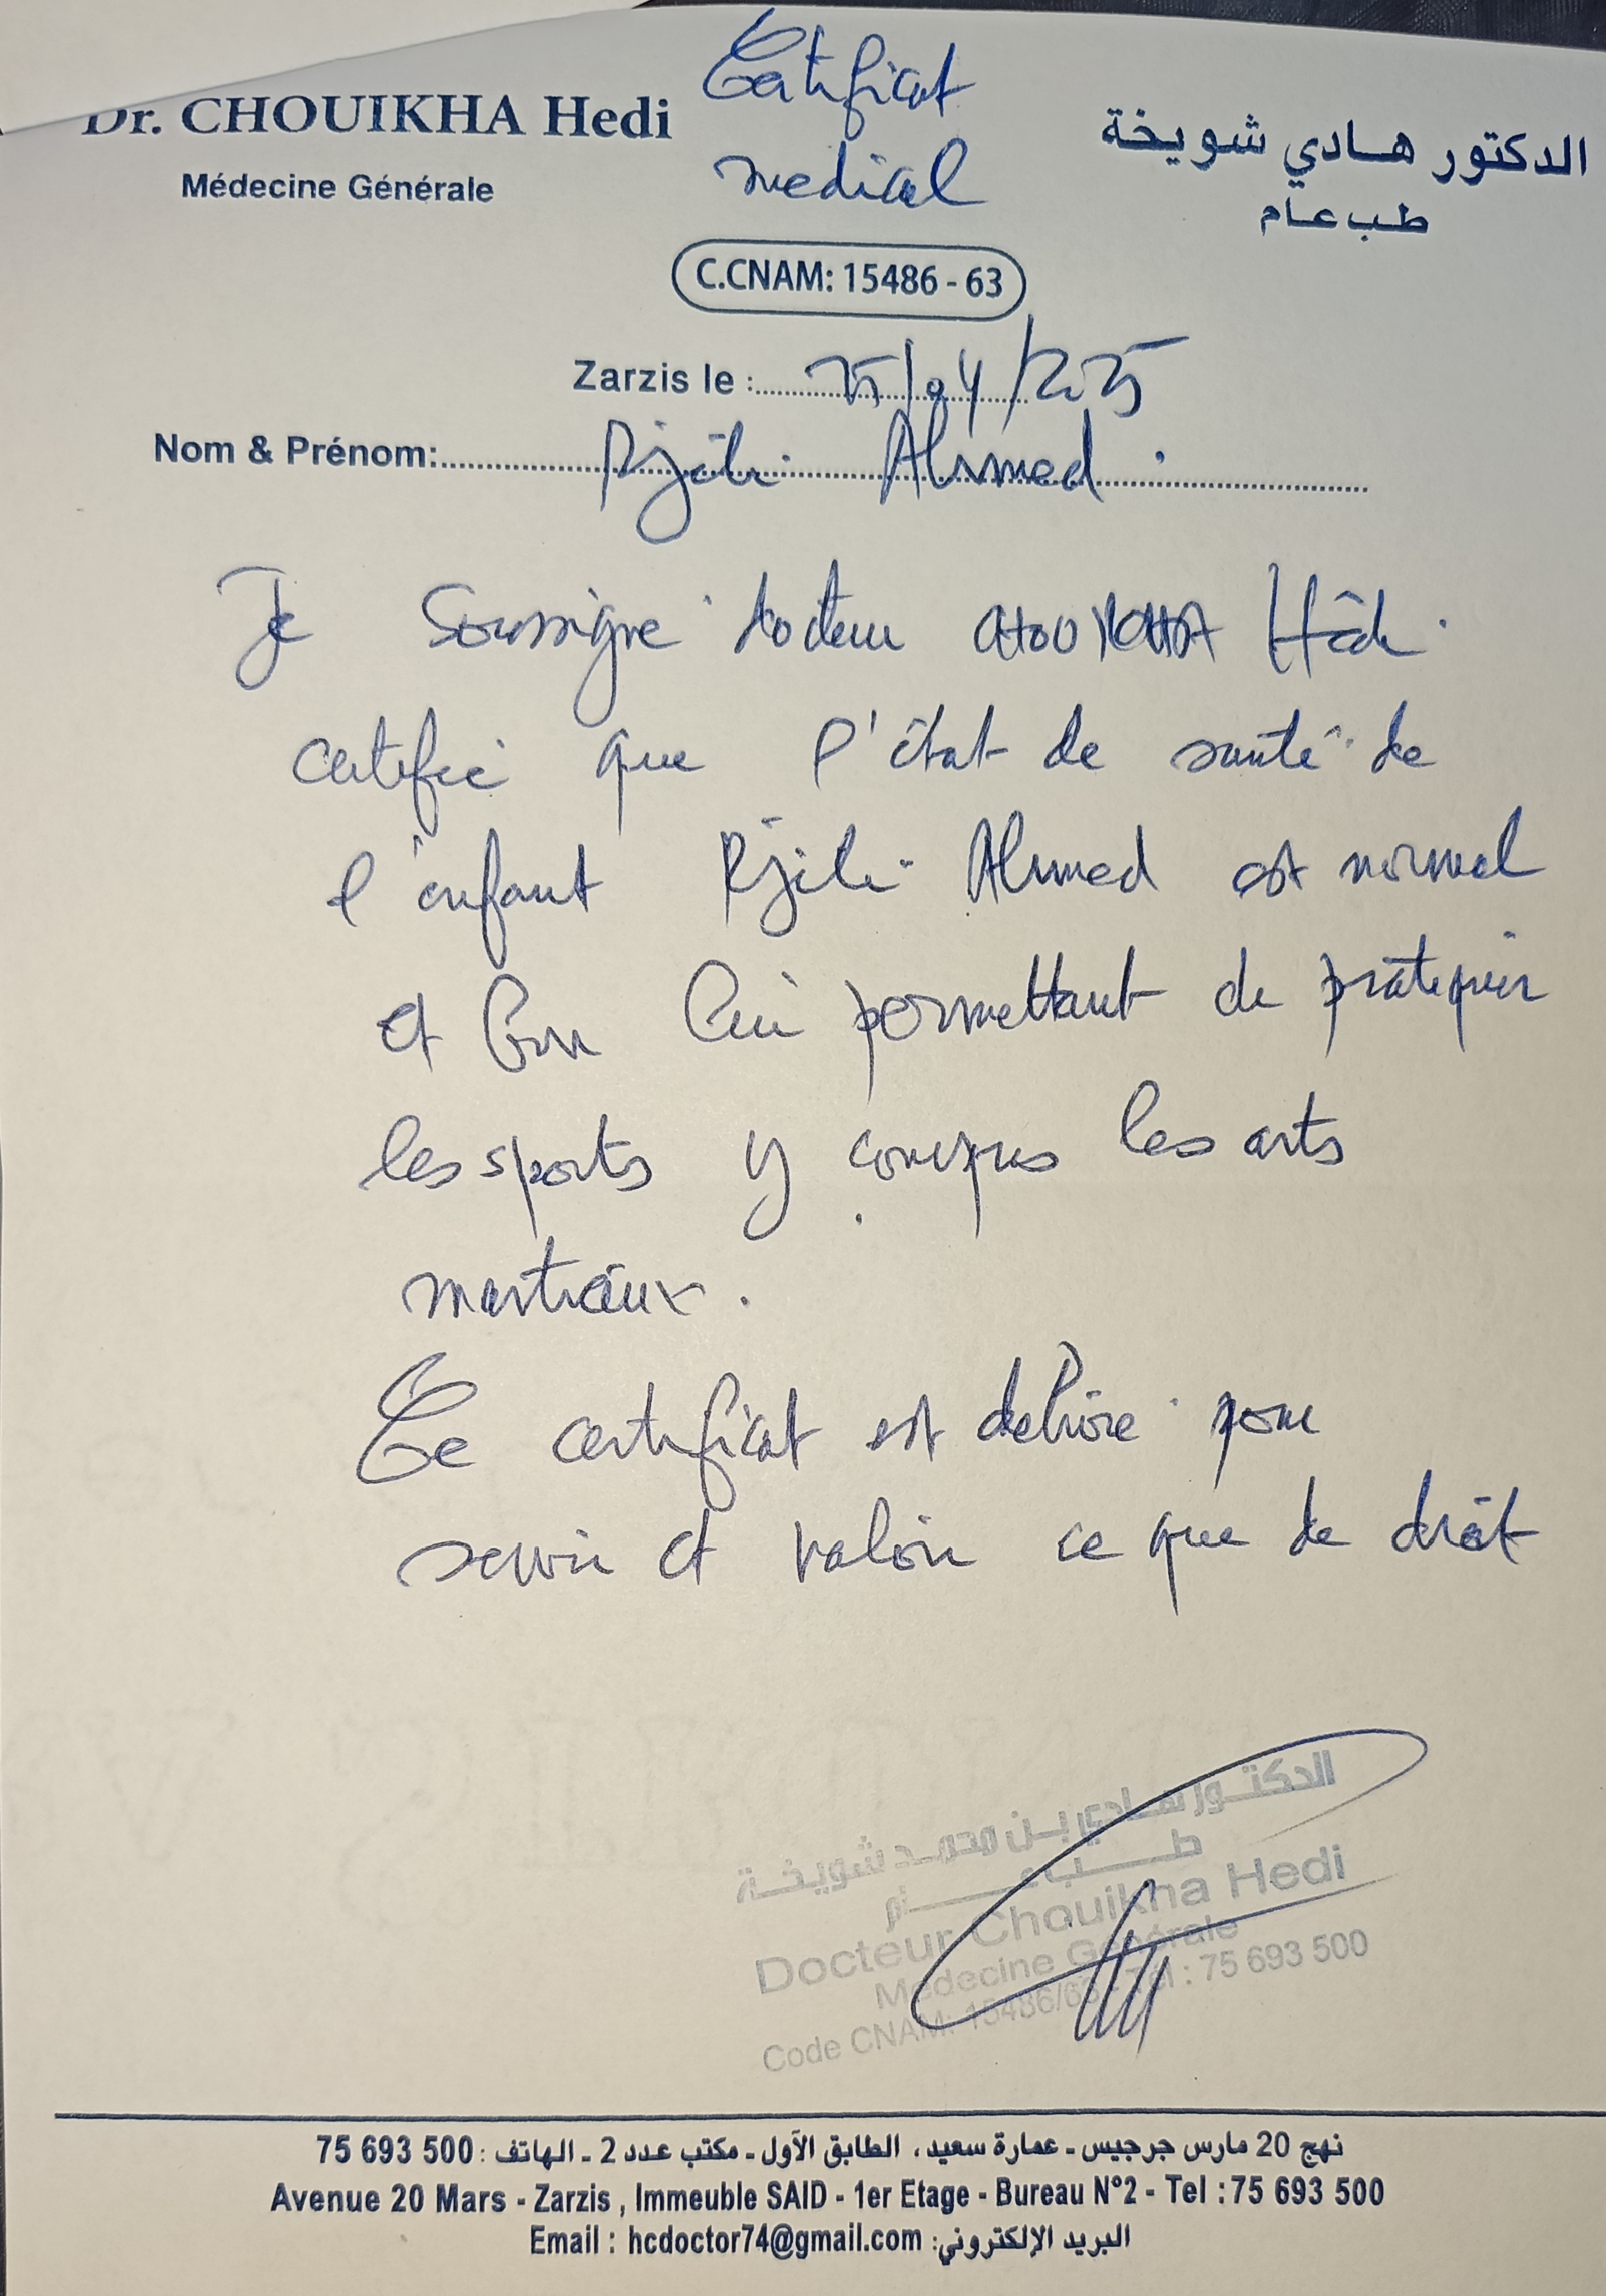 Certificat
medical
Dr. CHOUIKHA Hedi
Médecine Générale
الدكتور هادي شويخة
طب عام
C.CNAM: 15486 - 63
Zarzis le : 25/04/2025
Nom & Prénom: Rjili Ahmed
Je soussigné docteur CHOUIKHA Hédi
certifie que l'état de santé de
l'enfant Rjili Ahmed est normal
et bon lui permettant de pratiquer
les sports y compris les arts
martiaux.
Ce certificat est délivré pour
servir et valoir ce que de droit
الدكتور هادي بن محمد شويخة
طب عام
Docteur Chouikha Hedi
Médecine Générale
Code CNAM: 15486/63 - Tél : 75 693 500
نهج 20 مارس جرجيس - عمارة سعيد، الطابق الأول - مكتب عدد 2 - الهاتف : 500 693 75
Avenue 20 Mars - Zarzis , Immeuble SAID - 1er Etage - Bureau N°2 - Tel :75 693 500
Email : hcdoctor74@gmail.com :البريد الإلكتروني